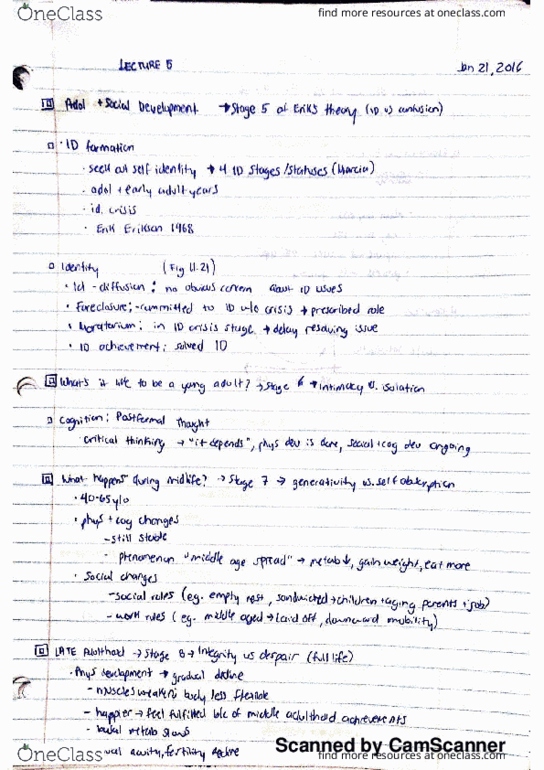 OneClass find more resources at oneclass.com
LECTURE 5 Jan 21, 2016
Adol + Social Development → Stage 5 of Erik's theory (ID vs confusion)
· ID formation
· seek out self identity → 4 ID Stages/Statuses (Marcia)
- adol + early adult years
- id. crisis
· Erik Erikson 1968
Identity (Fig 11.21)
· Id - diffusion: no obvious concern about ID issues
· Foreclosure: - committed to ID w/o crisis → prescribed role
· Moratorium: in ID crisis stage → delay resolving issue
· ID achievement: solved ID
What's it like to be a young adult? → Stage 6 → intimacy vs. isolation
Cognition: Postformal thought
critical thinking → "it depends", phys dev is done, social + cog dev ongoing
What happens during midlife? → Stage 7 → generativity vs. self absorption
· 40-65 y/o
· phys + cog changes
- still stable
- phenomenon "middle age spread" → metab ↓, gain weight, eat more
· Social changes
- social roles (eg. empty nest, sandwiched → children + aging parents + job)
- work roles (eg. middle aged → laid off, downward mobility)
LATE Adulthood → Stage 8 → Integrity vs despair (full life)
· Phys development → gradual decline
- muscles weaken: body less flexible
- happier → feel fulfilled b/c of middle adulthood achievements
- basal metab slows
acuity, fertility decline
Scanned by CamScanner
OneClass find more resources at oneclass.com